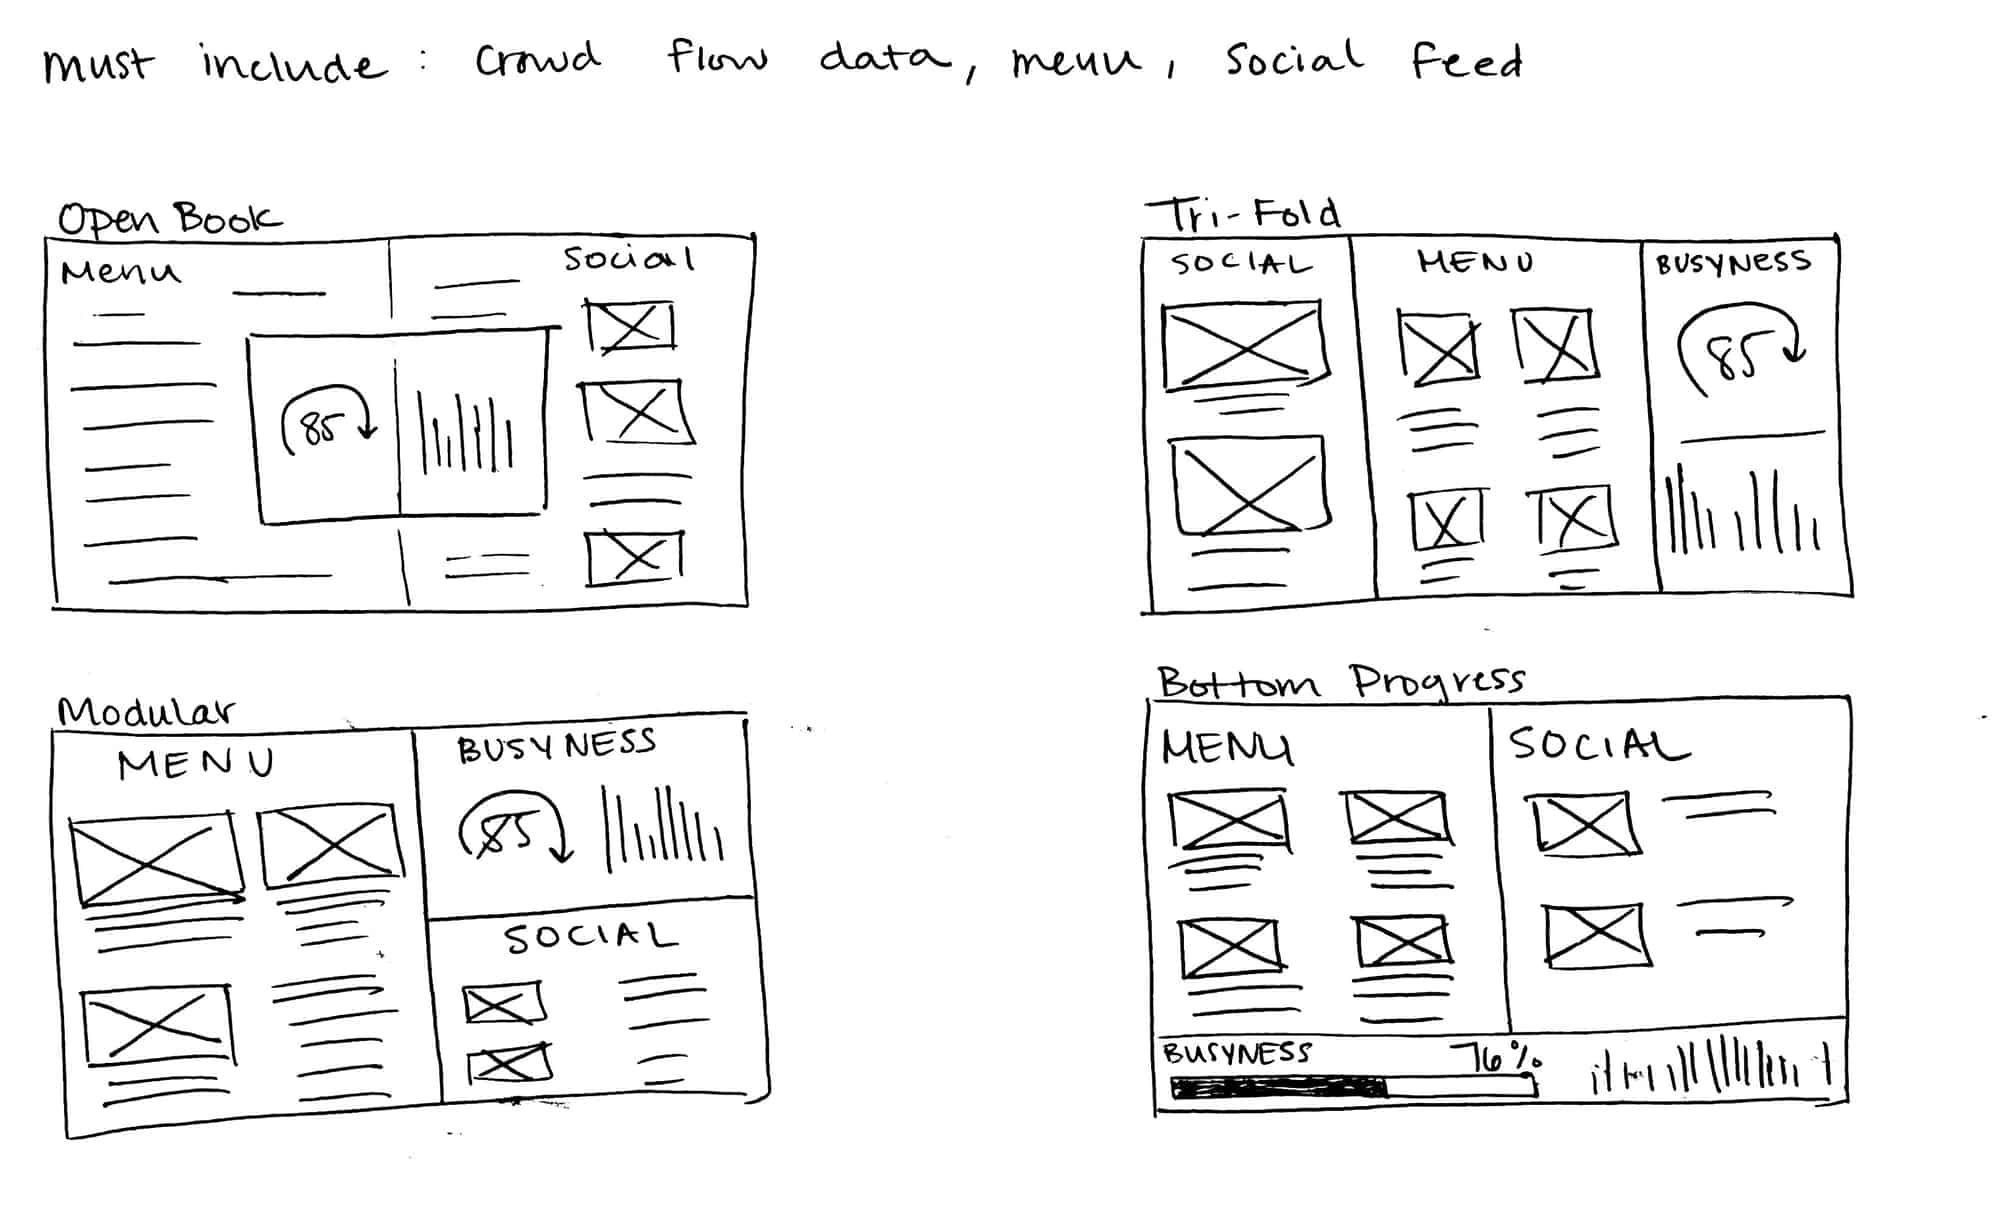 must include: crowd flow data, menu, social feed
Open Book
Menu
Social
85
Tri-Fold
SOCIAL
MENU
BUSYNESS
85
Modular
MENU
BUSYNESS
85
SOCIAL
Bottom Progress
MENU
SOCIAL
BUSYNESS
76%